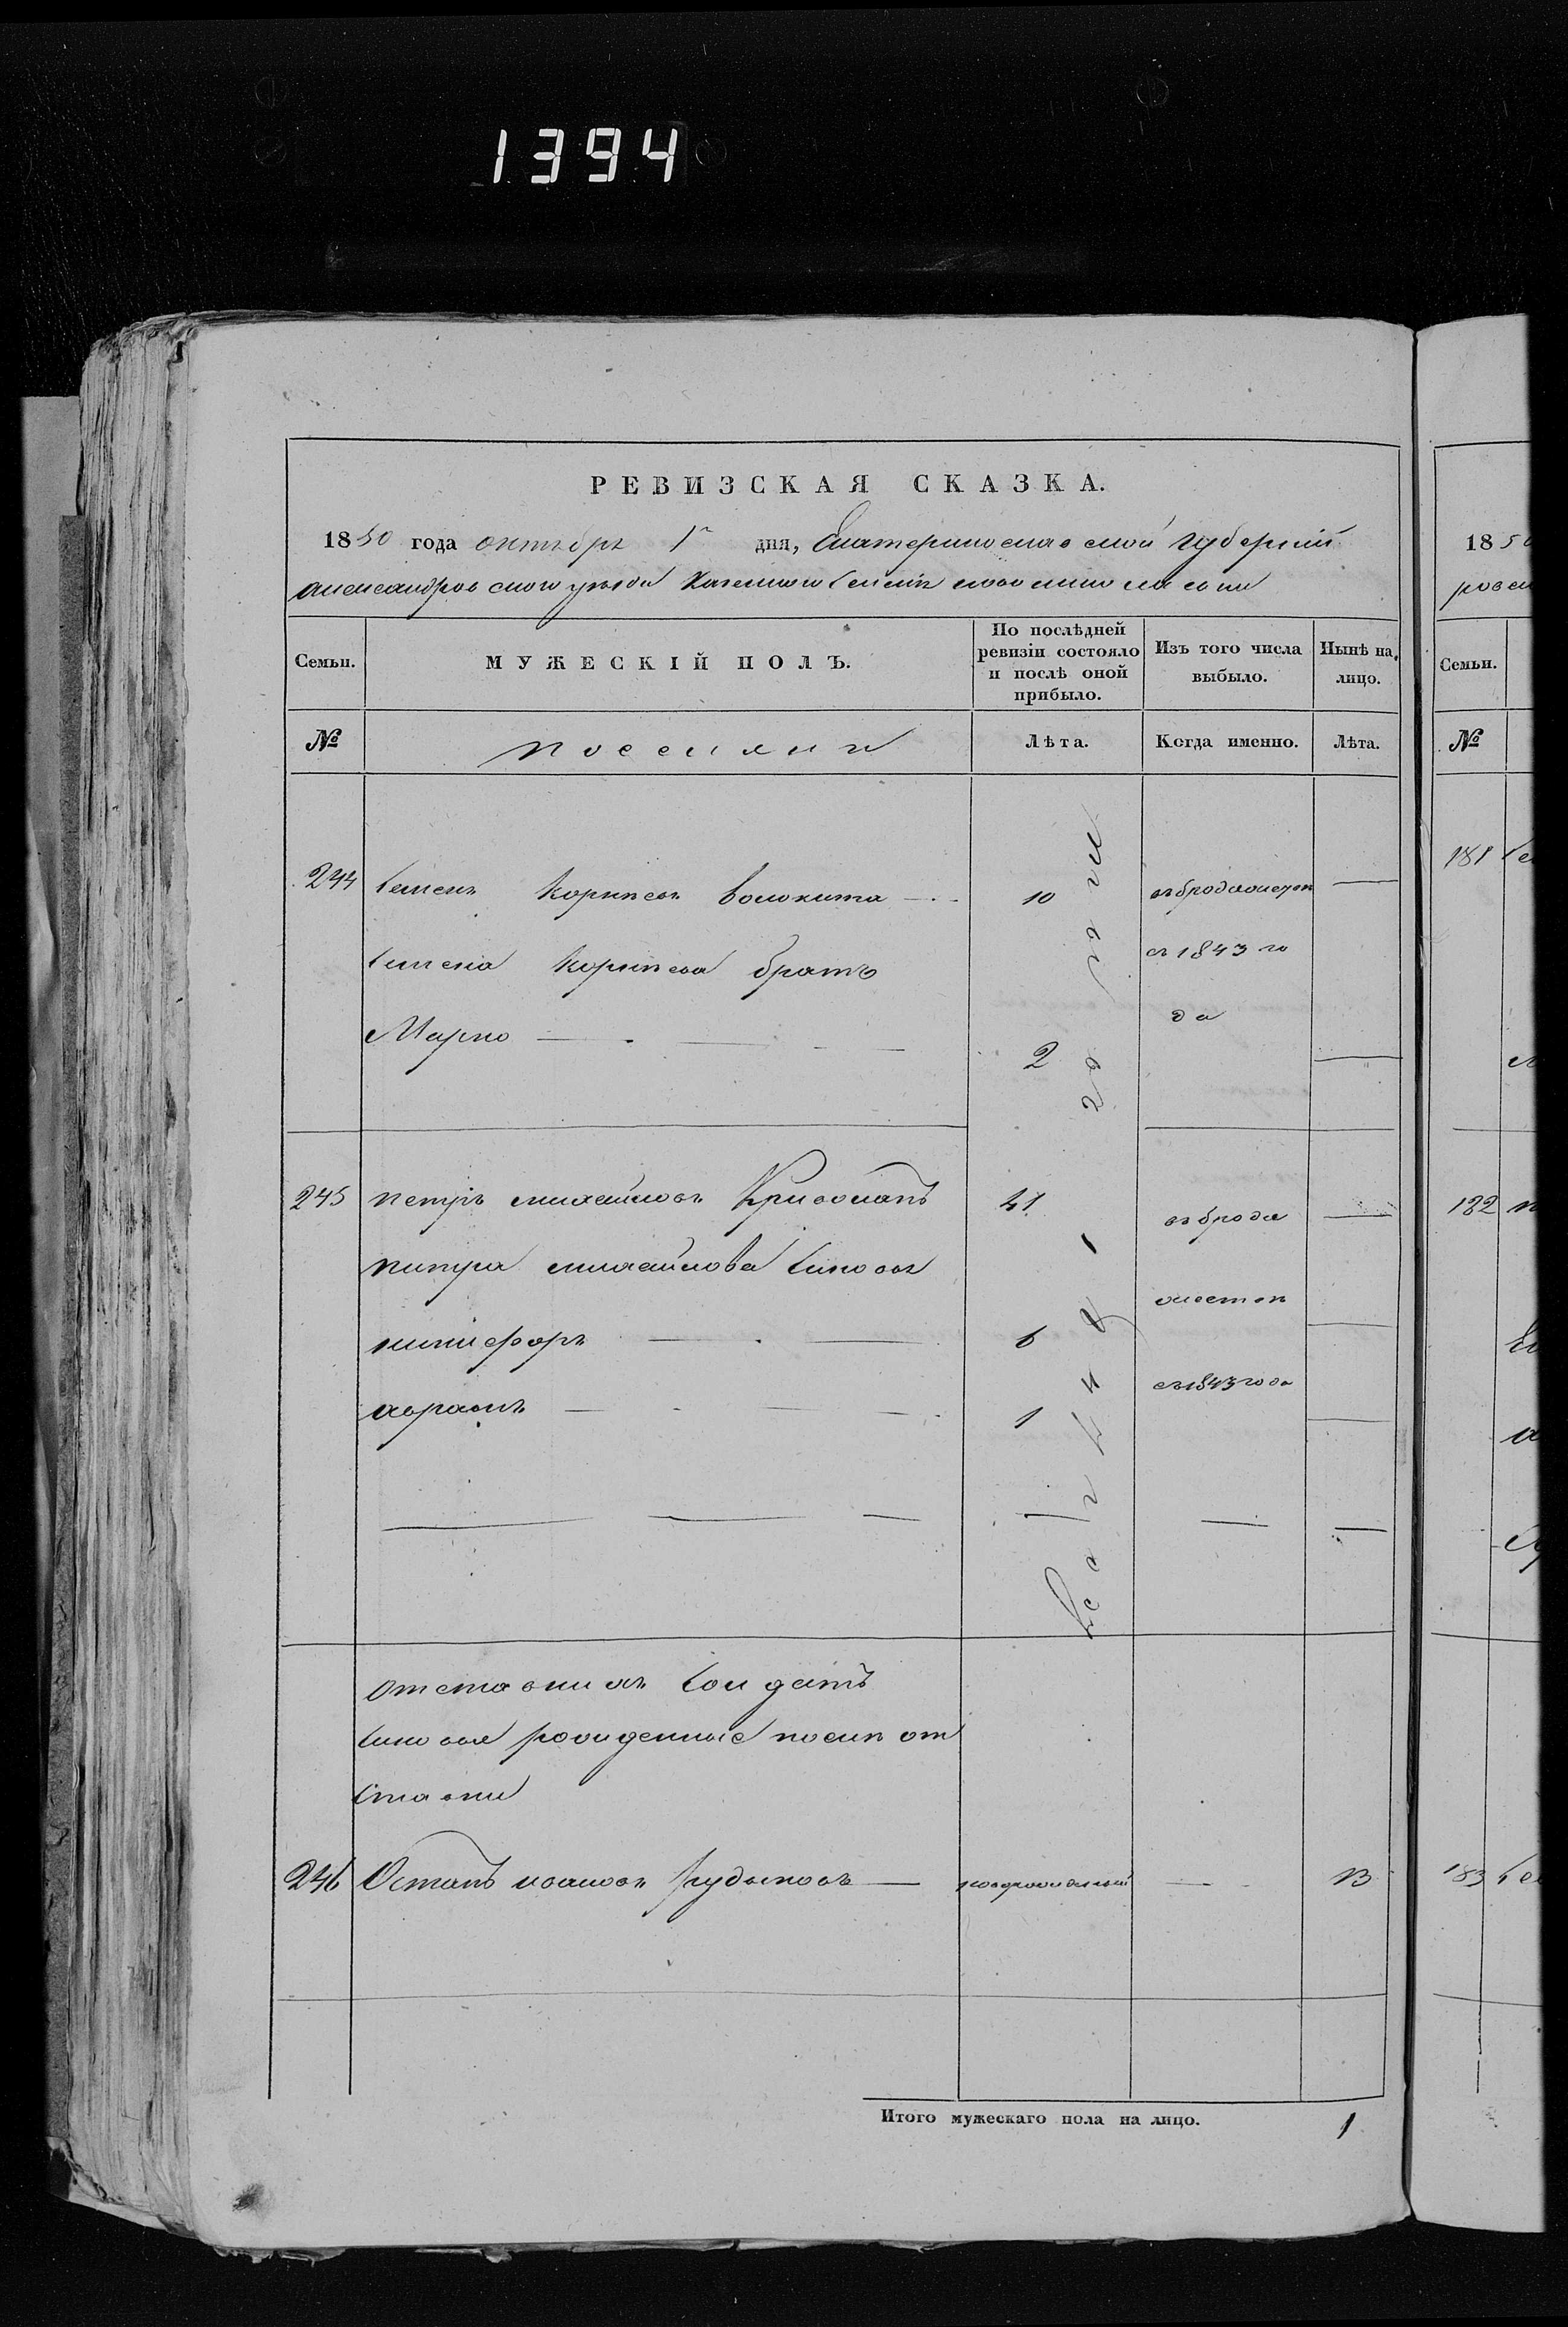 1394
РЕВИЗСКАЯ СКАЗКА.
1850 года октября 1го дня, Екатеринославской губерніи
александровского уезда Казенного Селенія новониколаевки
Семьи.
МУЖЕСКІЙ ПОЛЪ.
По послѣдней ревизіи состояло и послѣ оной прибыло.
Изъ того числа выбыло.
Нынѣ на лицо.
№
поселяни
Лѣта.
Когда именно.
Лѣта.
244 Семенъ Корнѣевъ волокита 10 въбродяжествѣ
съ 1843 го
да
Семена Корнѣева братъ
Марко 2
245 петръ михайловъ Кривошапъ 41 въ бродя
жествѣ
съ 1843 года
питра михайлова Синовья
никифоръ 6
аврамъ 1
отставнихъ Солдатъ
Синовья рожденные послѣ от
ставки
246 Остапъ ивановъ Рудыковъ новорожденный 13
Итого мужескаго пола на лицо. 1
1850
ровск
Семьи.
№
181 Се
182 п
183 Се